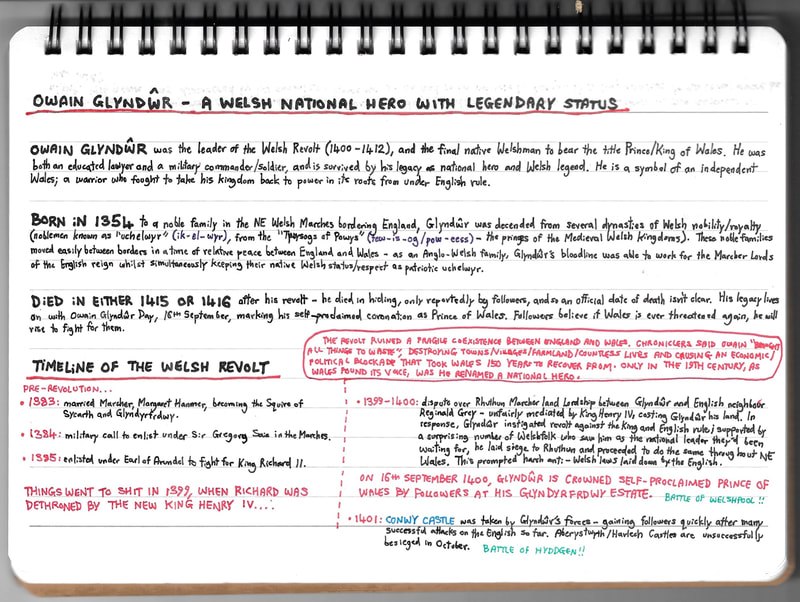 OWAIN GLYNDŴR - A WELSH NATIONAL HERO WITH LEGENDARY STATUS
OWAIN GLYNDŴR was the leader of the Welsh Revolt (1400-1412), and the final native Welshman to bear the title Prince/King of Wales. He was
both an educated lawyer and a military commander/soldier, and is survived by his legacy as national hero and Welsh legend. He is a symbol of an independent
Wales; a warrior who fought to take his kingdom back to power in its roots from under English rule.
BORN IN 1354 to a noble family in the NE Welsh Marches bordering England, Glyndŵr was decended from several dynasties of Welsh nobility/royalty
(noblemen known as "uchelwyr" (ik-el-wyr), from the "Tywysogs of Powys" (tow-is-og/pow-eess) - the princes of the Medieval Welsh Kingdoms). These noble families
moved easily between borders in a time of relative peace between England and Wales - as an Anglo-Welsh family, Glyndŵr's bloodline was able to work for the Marcher Lords
of the English reign whilst simultaneously keeping their native Welsh status/respect as patriotic uchelwyr.
DIED IN EITHER 1415 OR 1416 after his revolt - he died in hiding, only reportedly by followers, and so an official date of death isn't clear. His legacy lives
on with Owain Glyndŵr Day, 16th September, marking his self-proclaimed coronation as Prince of Wales. Followers believe if Wales is ever threatened again, he will
rise to fight for them.
THE REVOLT RUINED A FRAGILE COEXISTENCE BETWEEN ENGLAND AND WALES. CHRONICLERS SAID OWAIN "BROUGHT
ALL THINGS TO WASTE", DESTROYING TOWNS/VILLAGES/FARMLAND/COUNTLESS LIVES AND CAUSING AN ECONOMIC/
POLITICAL BLOCKADE THAT TOOK WALES 150 YEARS TO RECOVER FROM. ONLY IN THE 19TH CENTURY, AS
WALES FOUND ITS VOICE, WAS HE RENAMED A NATIONAL HERO.
TIMELINE OF THE WELSH REVOLT
PRE-REVOLUTION...
• 1383: married Marcher, Margaret Hanmer, becoming the Squire of
Sycarth and Glyndyfrdwy.
• 1384: military call to enlist under Sir Gregory Sais in the Marches.
• 1385: enlisted under Earl of Arundel to fight for King Richard II.
THINGS WENT TO SHIT IN 1399, WHEN RICHARD WAS
DETHRONED BY THE NEW KING HENRY IV....
• 1399-1400: dispute over Rhuthun Marcher land Lordship between Glyndŵr and English neighbour
Reginald Grey - unfairly mediated by King Henry IV, casting Glyndŵr his land. In
response, Glyndŵr instigated revolt against the King and English rule; supported by
a surprising number of Welshfolk who saw him as the national leader they'd been
waiting for, he laid siege to Rhuthun and proceeded to do the same throughout NE
Wales. This prompted harsh anti-Welsh laws laid down by the English.
ON 16th SEPTEMBER 1400, GLYNDŴR IS CROWNED SELF-PROCLAIMED PRINCE OF
WALES BY FOLLOWERS AT HIS GLYNDYFRDWY ESTATE. BATTLE OF WELSHPOOL!!
• 1401: CONWY CASTLE was taken by Glyndŵr's forces - gaining followers quickly after many
successful attacks on the English so far. Aberystwyth/Harlech Castles are unsuccessfully
besieged in October. BATTLE OF HYDDGEN!!